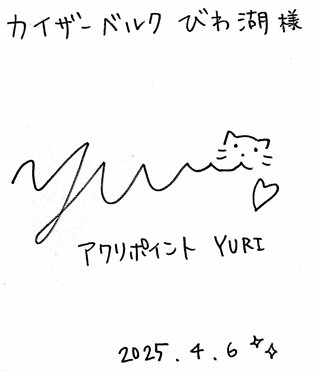 カイザーベルク びわ湖 様
yuri
アクリポイント YURI
2025.4.6